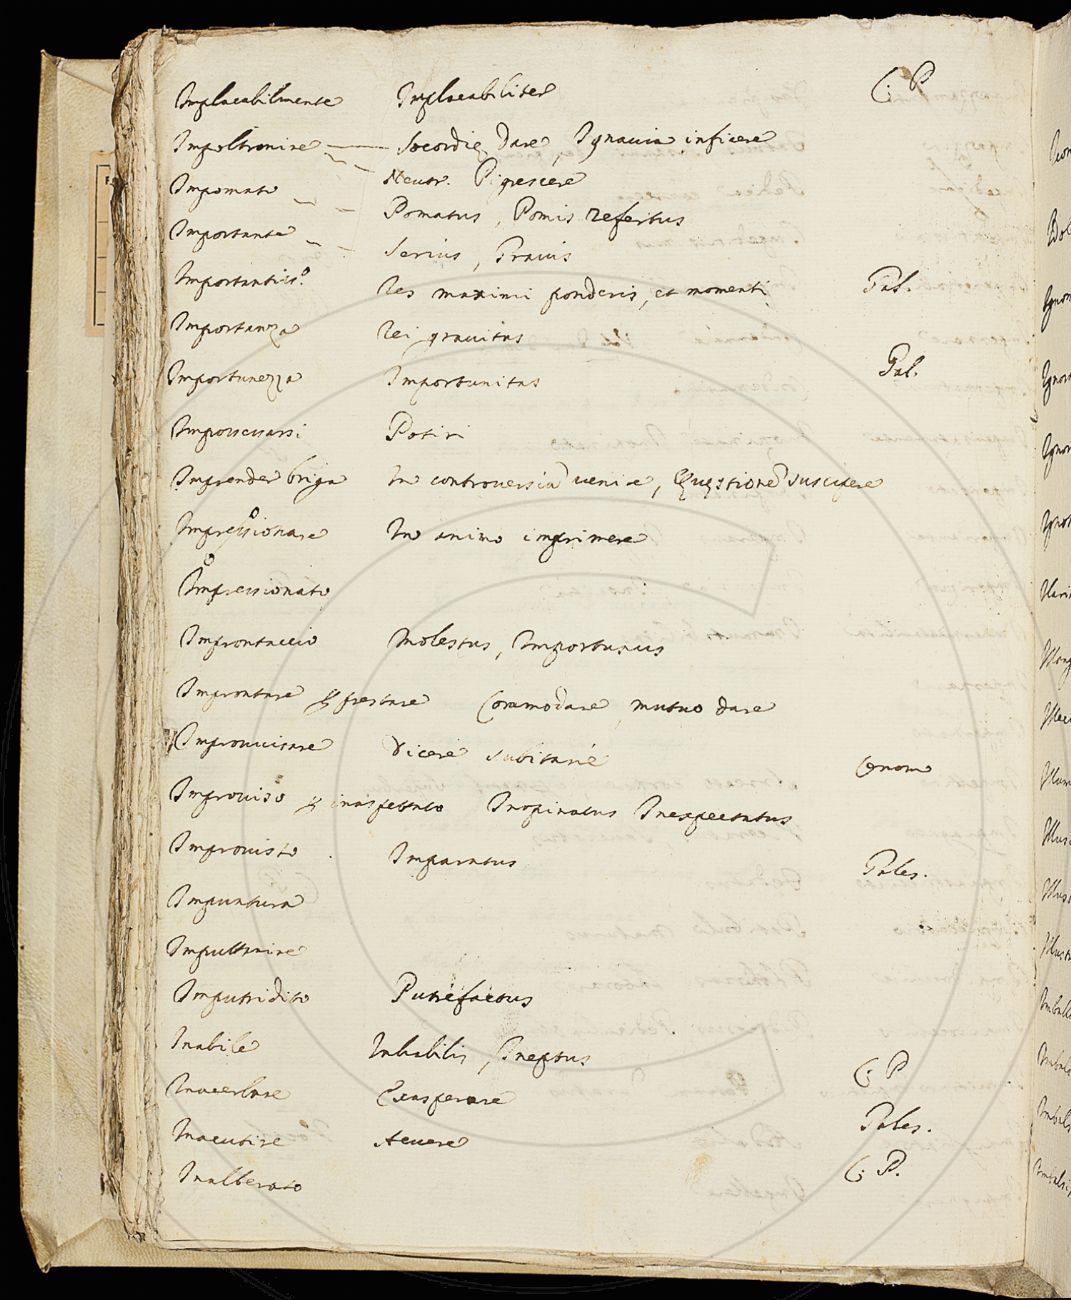 Implacabilmente Implacabiliter C. P.
Impoltronire Socordię dare, Ignavia inficere
Neutr. Pigrescere
Impomato Pomatus, Pomis refertus
Importante Serius, Gravis
Importantiss.o Res maximi ponderis, et momenti Pal.
Importanza Rei gravitas
Importunezza Importunitas Pal.
Impossessarsi Potiri
Imprender briga In controversia venire, Quęstione suscipere
Impressionare In animo imprimere
Impressionato
Improntaccio Molestus, Importunus
Improntare p prestare Commodare, mutuo dare
Improvvisare Dicere subitarie
Improviso p inaspettato Inopinatus Inexpectatus
Improvisto Imparatus Pales.
Impuntura
Imputtanire
Imputridito Putrefactus
Inabile Inhabilis, Ineptus C. P
Inacerbare Exasperare
Inacutire Acuere Pales.
Inalberato C. P.